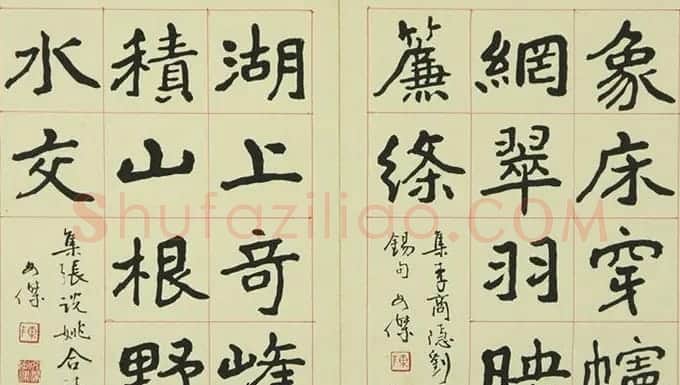 象床穿
網翠羽映
簾絛
集李商隱劉
錫句 傑
湖上奇峰
積山根野
水交
集張說姚合
傑
Shufaziliao.COM